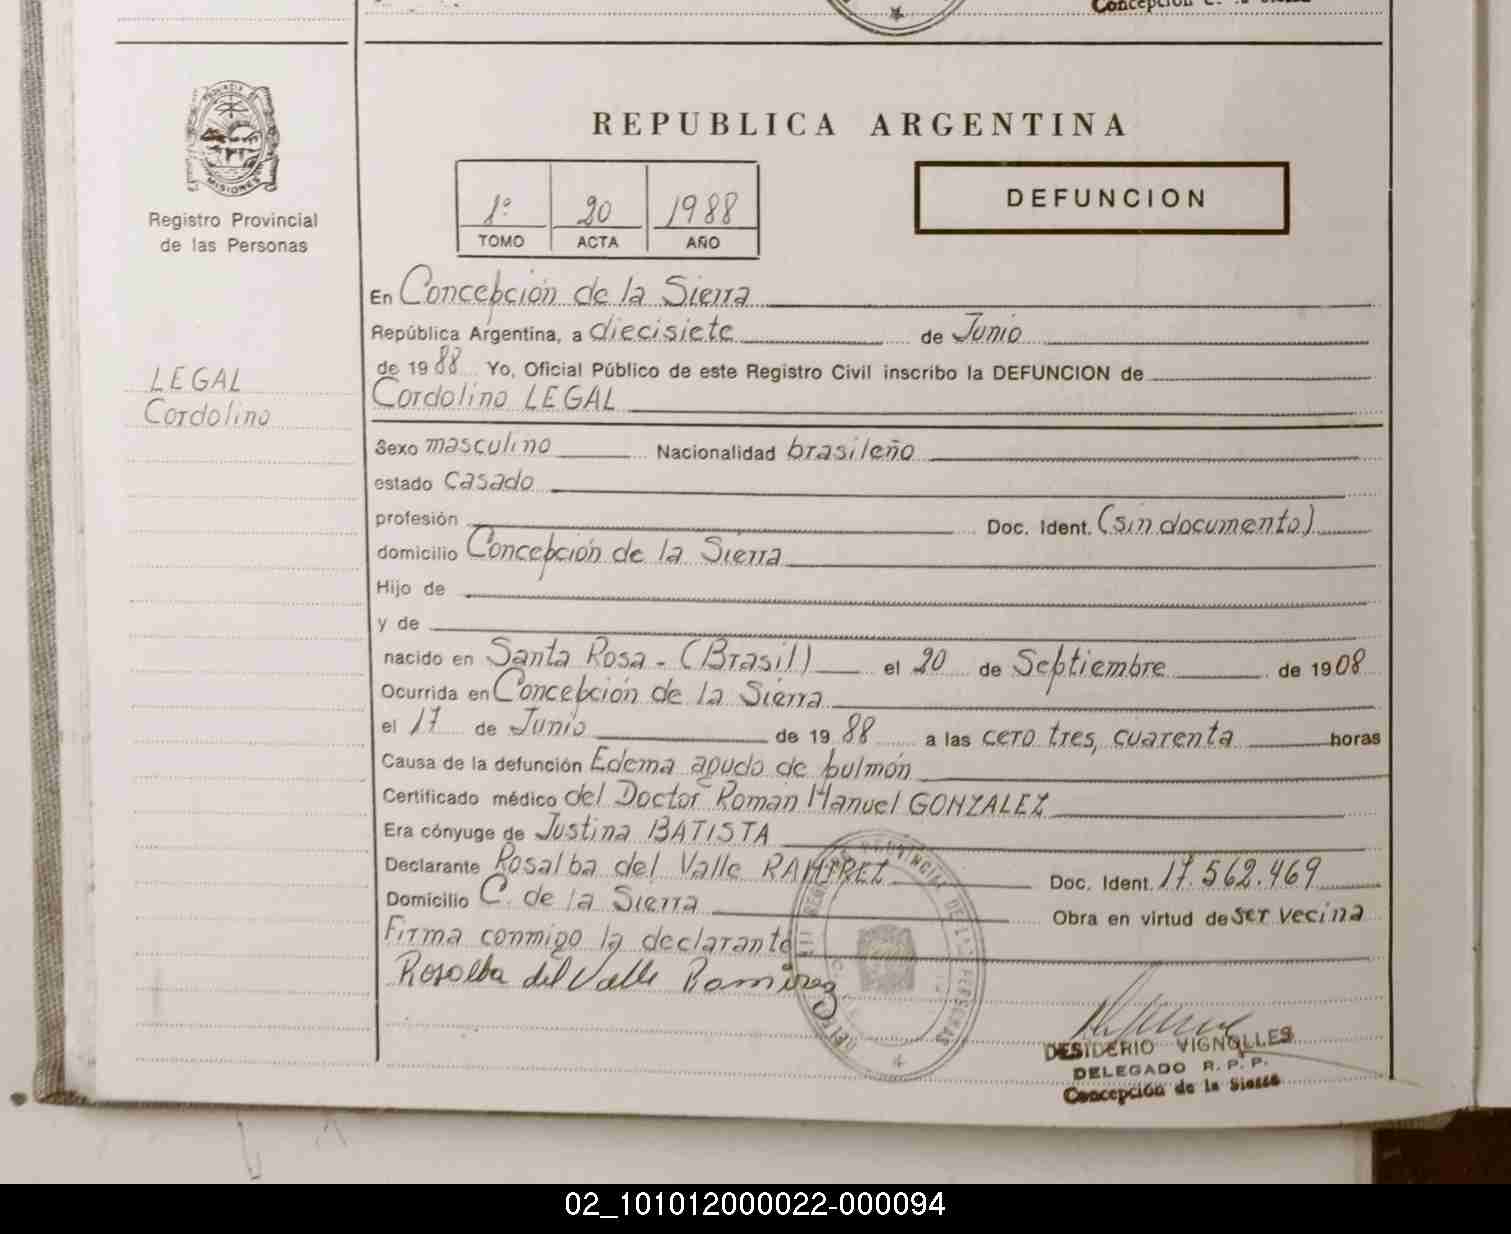 Concepción
PROVINCIA DE
MISIONES
Registro Provincial
de las Personas
LEGAL
Cordolino
REPUBLICA ARGENTINA
1º 20 1988
TOMO ACTA AÑO
DEFUNCION
En Concepción de la Sierra
República Argentina, a diecisiete de Junio
de 1988 Yo, Oficial Público de este Registro Civil inscribo la DEFUNCION de
Cordolino LEGAL
Sexo masculino Nacionalidad brasileño
estado Casado
profesión Doc. Ident. (sin documento)
domicilio Concepción de la Sierra
Hijo de
y de
nacido en Santa Rosa - (Brasil) el 20 de Septiembre de 1908
Ocurrida en Concepción de la Sierra
el 17 de Junio de 1988 a las cero tres, cuarenta horas
Causa de la defunción Edema agudo de pulmón
Certificado médico del Doctor Roman Manuel GONZALEZ
Era cónyuge de Justina BATISTA
Declarante Rosalba del Valle RAMIREZ Doc. Ident. 17.562.469
Domicilio C. de la Sierra Obra en virtud de ser vecina
Firma conmigo la declarante
Rosalba del Valle Ramirez
DESIDERIO VIGNOLLES
DELEGADO R. P. P.
Concepción de la Sierra
02_101012000022-000094